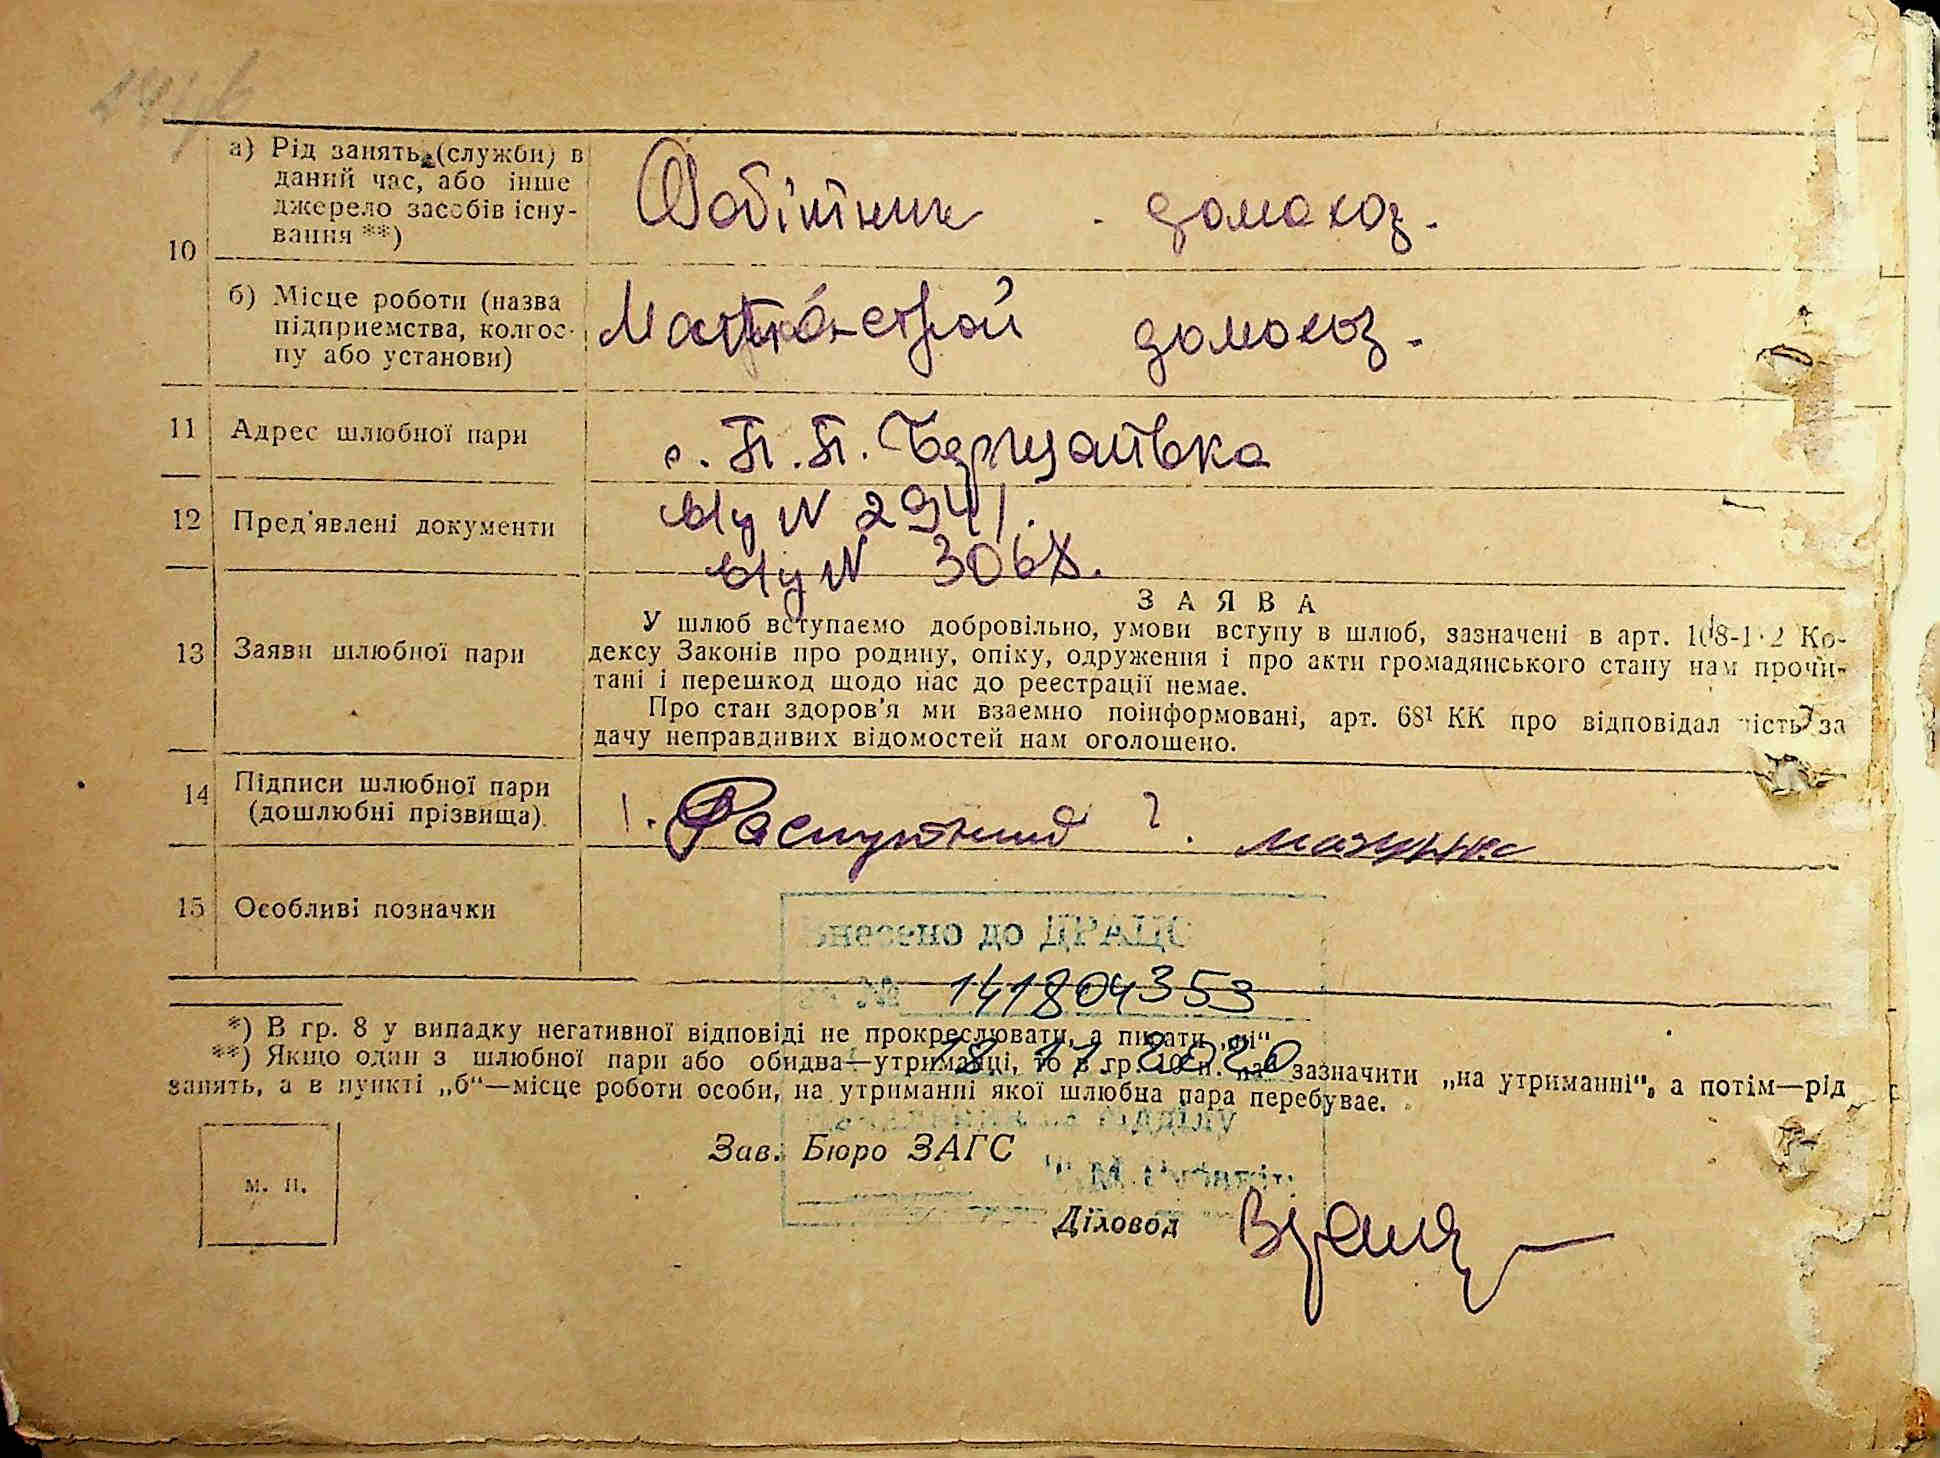 а) Рід занять (служби) в
даний час, або інше
джерело засобів існу-
вання **)
Робітник - домохоз.
10
б) Місце роботи (назва
підприємства, колгос-
пу або установи)
строй домохоз.
11 Адрес шлюбної пари
с. П. П. Борщагівка
12 Пред'явлені документи
N 2941.
N 3068.
13 Заяви шлюбної пари
ЗАЯВА
У шлюб вступаємо добровільно, умови вступу в шлюб, зазначені в арт. Ко-
дексу Законів про родину, опіку, одруження і про акти громадянського стану нам прочи-
тані і перешкод щодо нас до реєстрації немає.
Про стан здоров'я ми взаємно поінформовані, арт. 68¹ КК про відповідальність за
дачу неправдивих відомостей нам оголошено.
14 Підписи шлюбної пари
(дошлюбні прізвища).
1. Распутний 2.
15 Особливі позначки
Внесено до ДРАЦС
за № 141804353
*) В гр. 8 у випадку негативної відповіді не прокреслювати, а писати „ні“
**) Якщо один з шлюбної пари або обидва—утриманці, то в гр. 10 п. „а“ зазначити „на утриманні“, а потім—рід
занять, а в пункті „б“—місце роботи особи, на утриманні якої шлюбна пара перебуває.
18. 11. 2020
відділу
Зав. Бюро ЗАГС
м. п.
Діловод